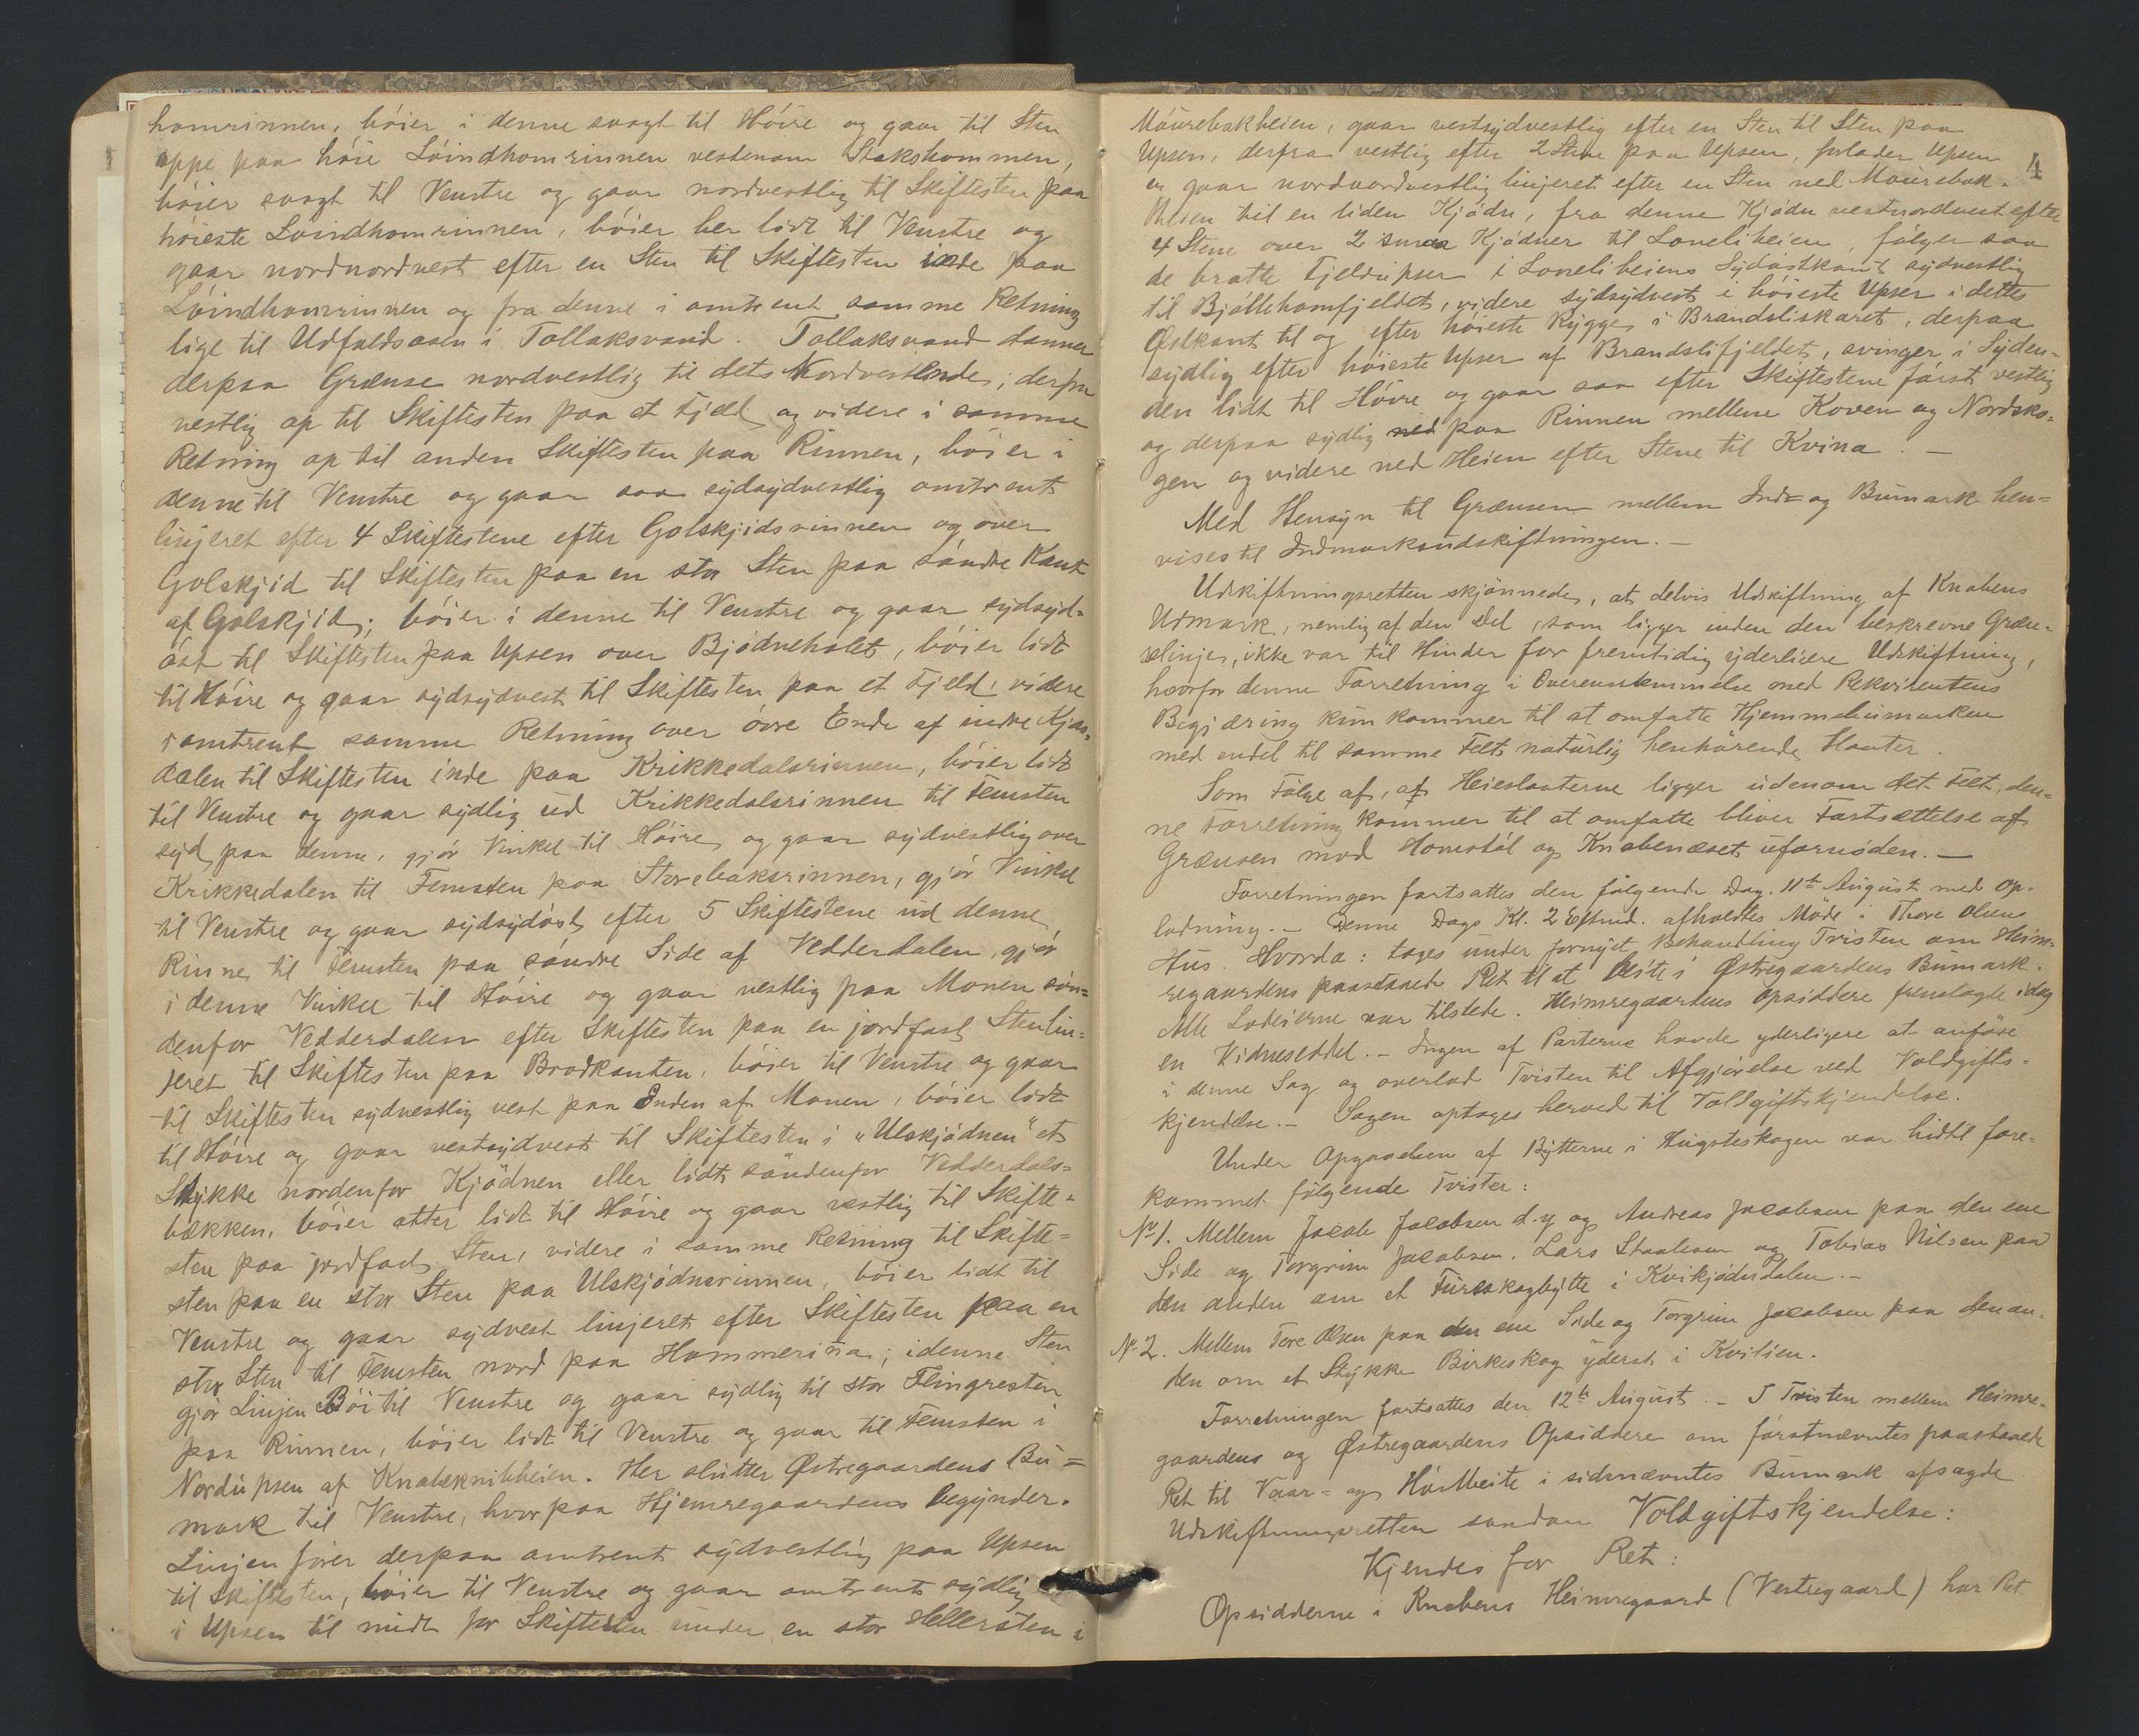 homrinnen, böier i denne svagt til Höire og gaar til Sten
oppe paa höie Löindhomrinnen vestenom Stakshommen,
böier svagt til Venstre og gaar nordvestlig til Skiftesten paa
höieste Löindhomrinnen, böier her lidt til Venstre og
gaar nordnordvest efter en Sten til Skiftesten inde paa
Löindhomrinnen og fra denne i omtrent samme Retning
lige til Udfaldsosen i Tollaksvand. Tollaksvand danner
derpaa Grænse nordvestlig til dets Nordvestende; derfra
vestlig op til Skiftesten paa et Fjeld og videre i samme
Retning op til anden Skiftesten paa Rinnen, böier i
denne til Venstre og gaar saa sydsydvestlig omtrent
linjeret efter 4 Skiftestene efter Golskjidsrinnen og over
Golskjid til Skiftesten paa en stor Sten paa söndre Kant
af Golskjid; böier i denne til Venstre og gaar sydsyd-
öst til Skiftesten paa Upsen over Bjödneholet, böier lidt
til Höire og gaar sydsydvest til Skiftesten paa et Fjeld, videre
i omtrent samme Retning over övre Ende af indre Kjos-
dalen til Skiftesten inde paa Krikkedalsrinnen, böier lidt
til Venstre og gaar sydlig ud Krikkedalsrinnen til Femsten
syd paa denne, gjör Vinkel til Höire og gaar sydvestlig over
Krikkedalen til Femsten paa Storebaksrinnen, gjör Vinkel
til Venstre og gaar sydsydöst efter 5 Skiftestene ud denne
Rinne til Femsten paa söndre Side af Vedderdalen, gjör
i denne Vinkel til Höire og gaar vestlig paa Monen sön-
denfor Vedderdalen efter Skiftesten paa en jordfast Sten lin-
jeret til Skiftesten paa Brodkanten, böier til Venstre og gaar
til Skiftesten sydvestlig vest paa Enden af Monen, böier lidt
til Höire og gaar vestsydvest til Skiftesten i "Ulskjödnen" et
Stykke nordenfor Kjödnen eller lidt söndenfor Vedderdals-
bækken, böier atter lidt til Höire og gaar vestlig til Skifte-
sten paa jordfast Sten, videre i samme Retning til Skifte-
sten paa en stor Sten paa Ulskjödnsrinnen, böier lidt til
Venstre og gaar sydvest linjeret efter Skiftesten paa en
stor Sten til Femsten nord paa Hommeriña; i denne Sten
gjör Linjen Böi til Venstre og gaar sydlig til stor Flingresten
paa Rinnen, böier lidt til Venstre og gaar til Femsten i
Nordupsen af Knabeknibheien. Her slutter Østregaardens Bu-
mark til Venstre, hvorpaa Hjemregaardens begynder.
Linjen fører derpaa omtrent sydvestlig paa Upsen
til Skiftesten, böier til Venstre og gaar omtrent sydlig
i Upsen til midt for Skiftesten under en stor Hellersten i
4
Möurebakheien, gaar vestsydvestlig efter en Sten til Sten paa
Upsen, derfra vestlig efter 2 Stene paa Upsen, forlader Upsen
og gaar nordnordvestlig linjeret efter en Sten ned Mourebak-
til en liden Kjödn, fra denne Kjödn vestnordvest efter
4 Stene over 2 smaa Kjödner til Loneliheien, følger saa
de bratte Fjeldupser i Loneliheiens Sydöstkant sydvestlig
til Bjottehomfjeldet, videre sydsydvest i höieste Upser i dettes
Østkant til og efter höieste Rygge i Brandsliskaret, derpaa
sydlig efter höieste Upser af Brandslifjeldet, svinger i Syden-
den lidt til Höire og gaar saa efter Skiftestene först vestlig
og derpaa sydlig ned paa Rinnen mellem Koven og Nordsko-
gen og videre ned Heien efter Stene til Kvina. —
Med Hensyn til Grænsen mellem Ind- og Bumark hen-
vises til Indmarksudskiftningen. —
Udskiftningsretten skjönnede, at delvis Udskiftning af Knabens
Udmark, nemlig af den Del, som ligger inden den beskrevne Græn-
selinje, ikke var til Hinder for fremtidig yderligere Udskiftning,
hvorfor denne Forretning i Overensstemmelse med Rekvirentens
Begjæring kun kommer til at omfatte Hjemmebumarken
med endel til samme Felt naturlig henhörende Slaater.
Som Følge af, at Heieslaaterne ligger udenom det Felt, den-
ne Forretning kommer til at omfatte bliver Fortsættelse af
Grænsen mod Homstöl og Knabenæset ufornöden. —
Forretningen fortsattes den fölgende Dag. 11te August med Op-
lodning. — Denne Dags Kl. 2 Eftmd. afholdtes Möde i Thore Olsens
Hus. Hvorda: toges under fornyet Behandling Tvisten om Heim-
regaardens paastaaede Ret til at beite i Østregaardens Bumark.
Alle Lodeierne var tilstede. Heimregaardens Opsiddere fremlagde idag
en Vidneseddel. — Ingen af Parterne havde yderligere at anföre
i denne Sag og overlod Tvisten til Afgjörelse ved Voldgifts-
kjendelse. — Sagen optages herved til Voldgiftskjendelse.
Under Opgaaelsen af Bytterne i Hugsteskogen var hidtil fore-
kommet fölgende Tvister:
No 1. Mellem Jacob Jacobsen d. y og Andreas Jacobsen paa den ene
Side og Torgrim Jacobsen, Lars Staalesen og Tobias Nilsen paa
den anden om et Fureskogbytte i Kvikjödndalen. —
No 2. Mellem Tore Olsen paa den ene Side og Torgrim Jacobsen paa den an-
den om et Stykke Birkeskog yderst i Kvilien.
Forretningen fortsattes den 12te August. — I Tvisten mellem Heimre-
gaardens og Østregaardens Opsiddere om förstnævntes paastaaede
Ret til Vaar- og Höstbeite i sidnævntes Bumark afsagde
Udskiftningsretten saadan Voldgiftskjendelse:
Kjendes for Ret:
Opsidderne i Knabens Heimregaard (Vestregaard) har Ret